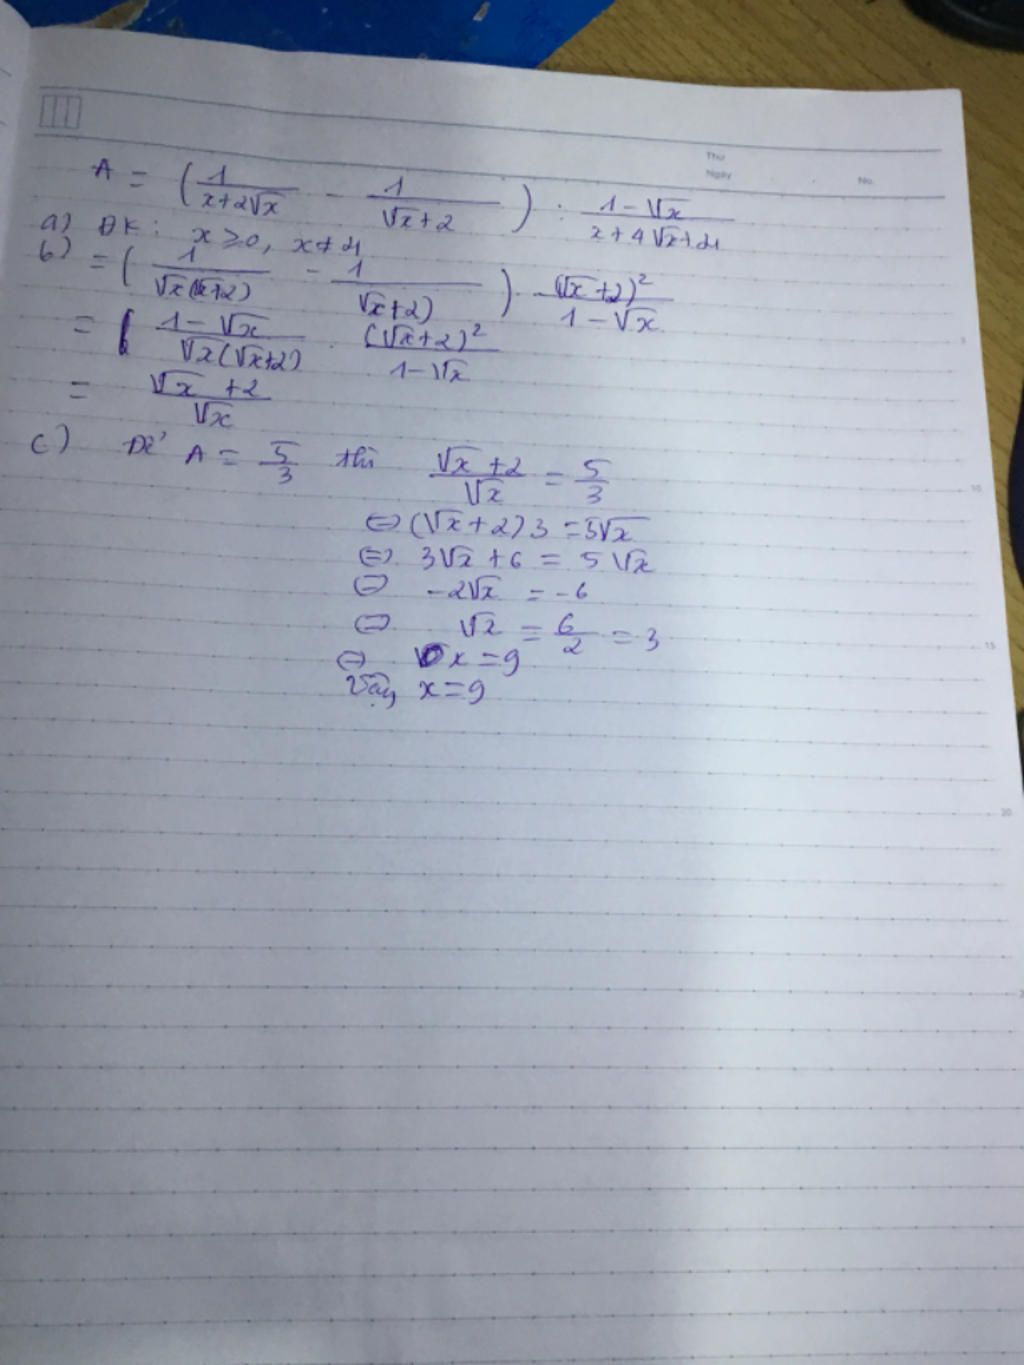 Thứ
Ngày No.
A = (1/(x+2√x) - 1/(√x+2)) : (1-√x)/(x+4√x+4)
a) ĐK: x ≥ 0, x ≠ 4
b) = (1/(√x(√x+2)) - 1/(√x+2)) . (√x+2)²/(1-√x)
= (1-√x)/(√x(√x+2)) . (√x+2)²/(1-√x)
= (√x+2)/√x
c) Để A = 5/3 thì (√x+2)/√x = 5/3
⇔ (√x+2)3 = 5√x
⇔ 3√x + 6 = 5√x
⇔ -2√x = -6
⇔ √x = 6/2 = 3
⇔ x = 9
Vậy x = 9
5
10
15
20